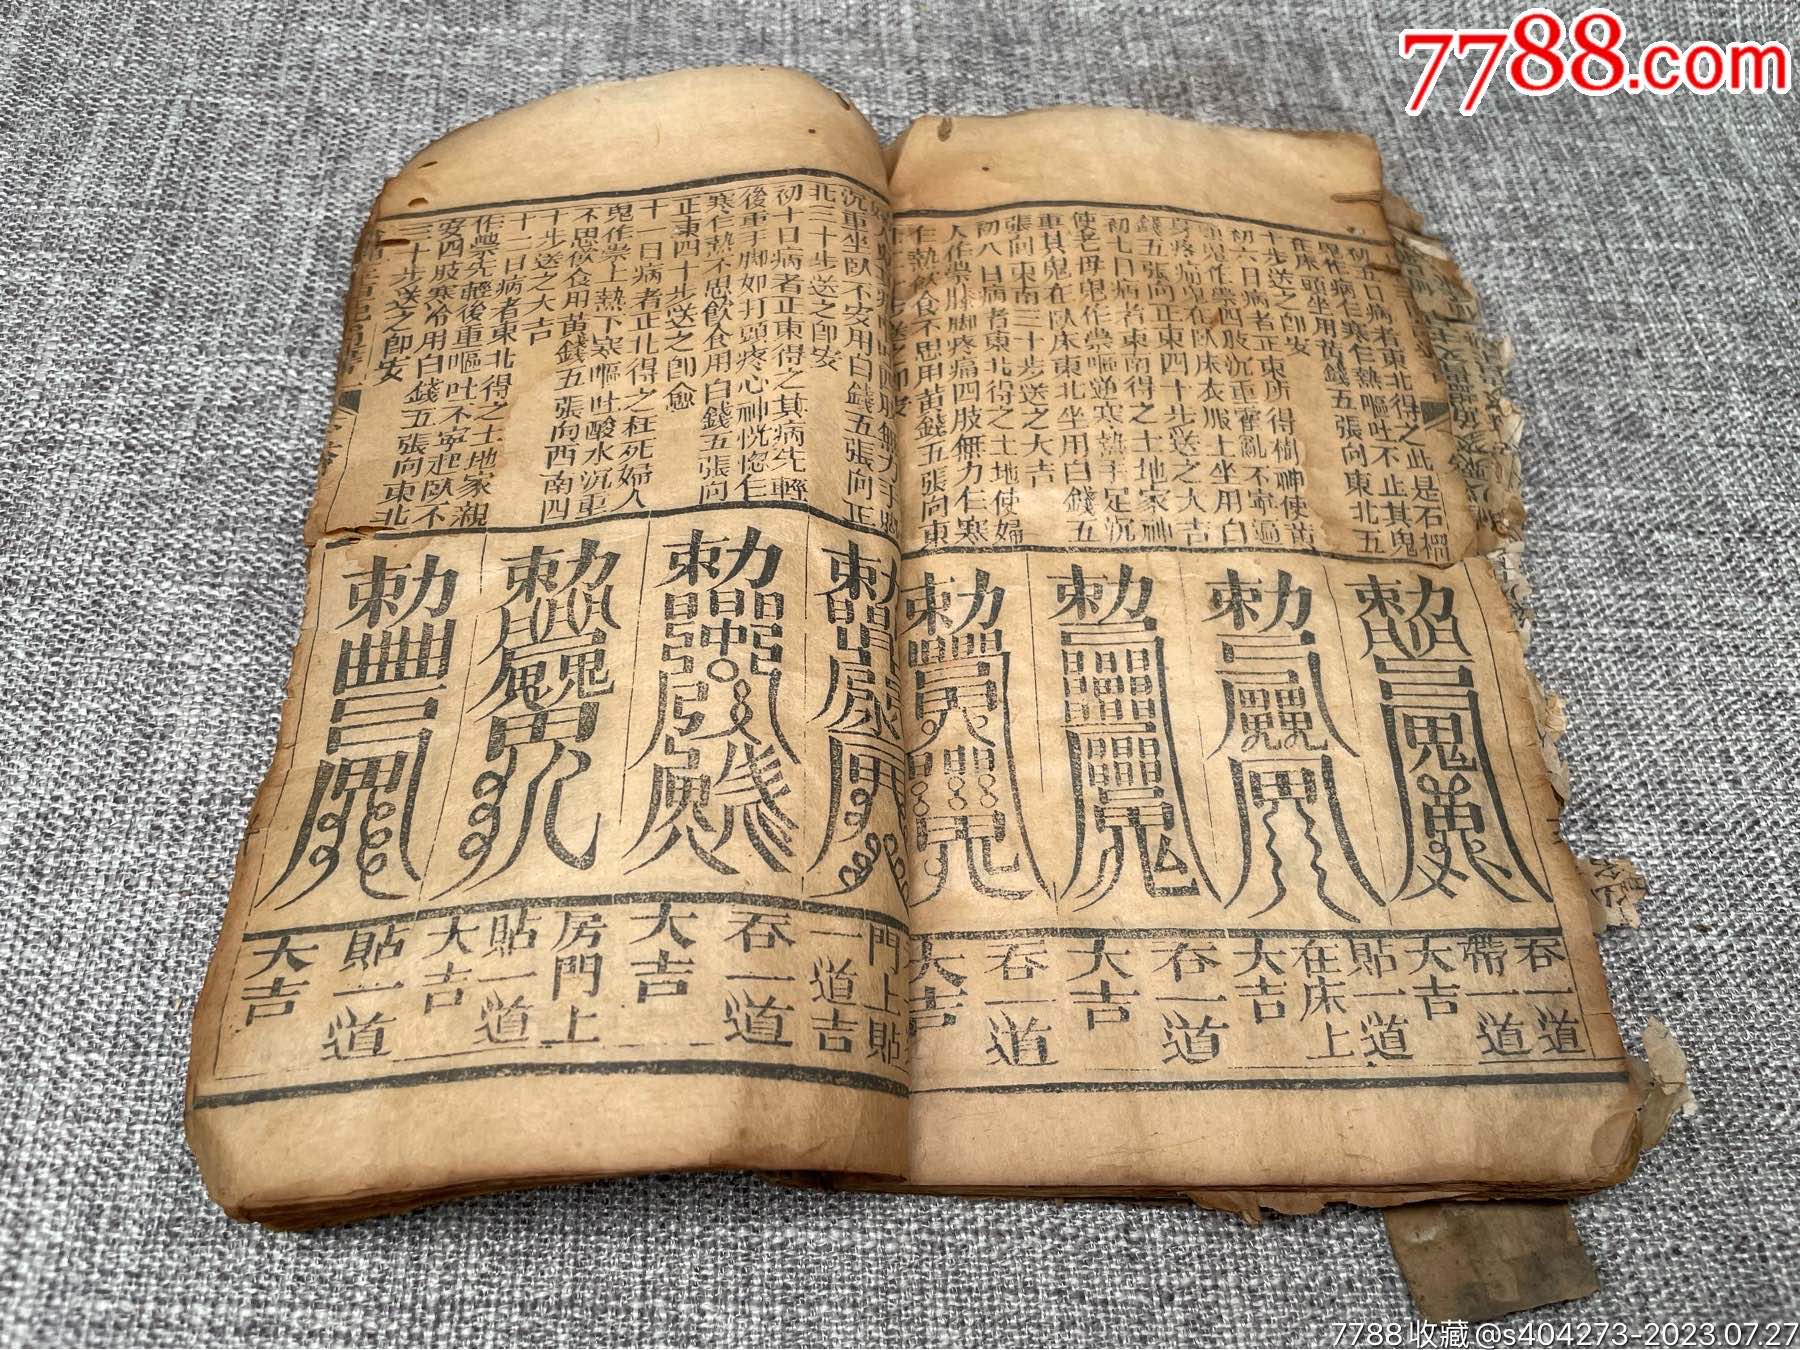 7788.com
初五日病者東北得之此是石榴
鬼作病乍寒乍熱嘔吐不止其鬼
在床頭坐用黃錢五張向東北五
十步送之即安
初六日病者正東所得樹神使黃
鬼作祟四肢沉重霍亂不寧遍
身疼痛鬼在臥床衣服上坐用白
錢五張向正東四十步送之大吉
初七日病者東南得之土地家神
使老母鬼作祟嘔逆寒熱手足沉
重其鬼在臥床東北坐用白錢五
張向東南三十步送之大吉
初八日病者東北得之土地使婦
人作祟膝脚疼痛四肢無力乍寒
乍熱飲食不思用黃錢五張向東
沉重坐臥不安用白錢五張向正
北三十步送之即安
初十日病者正東得之其病先輕
後重手脚如打頭疼心神恍惚乍
寒乍熱不思飲食用白錢五張向
正東四十步送之即愈
十一日病者正北得之枉死婦人
鬼作祟上熱下寒嘔吐酸水沉重
不思飲食用黃錢五張向西南四
十步送之大吉
十二日病者東北得之土地家親
作祟先輕後重嘔吐不寧起臥不
安四肢寒冷用白錢五張向東北
三十步送之即安
吞一道
帶一道
大吉
貼一道
在床上
大吉
吞一道
大吉
吞一道
大吉
門上貼
一道吉
吞一道
大吉
房門上
貼一道
大吉
貼一道
大吉
7788收藏@s404273-2023.07.27